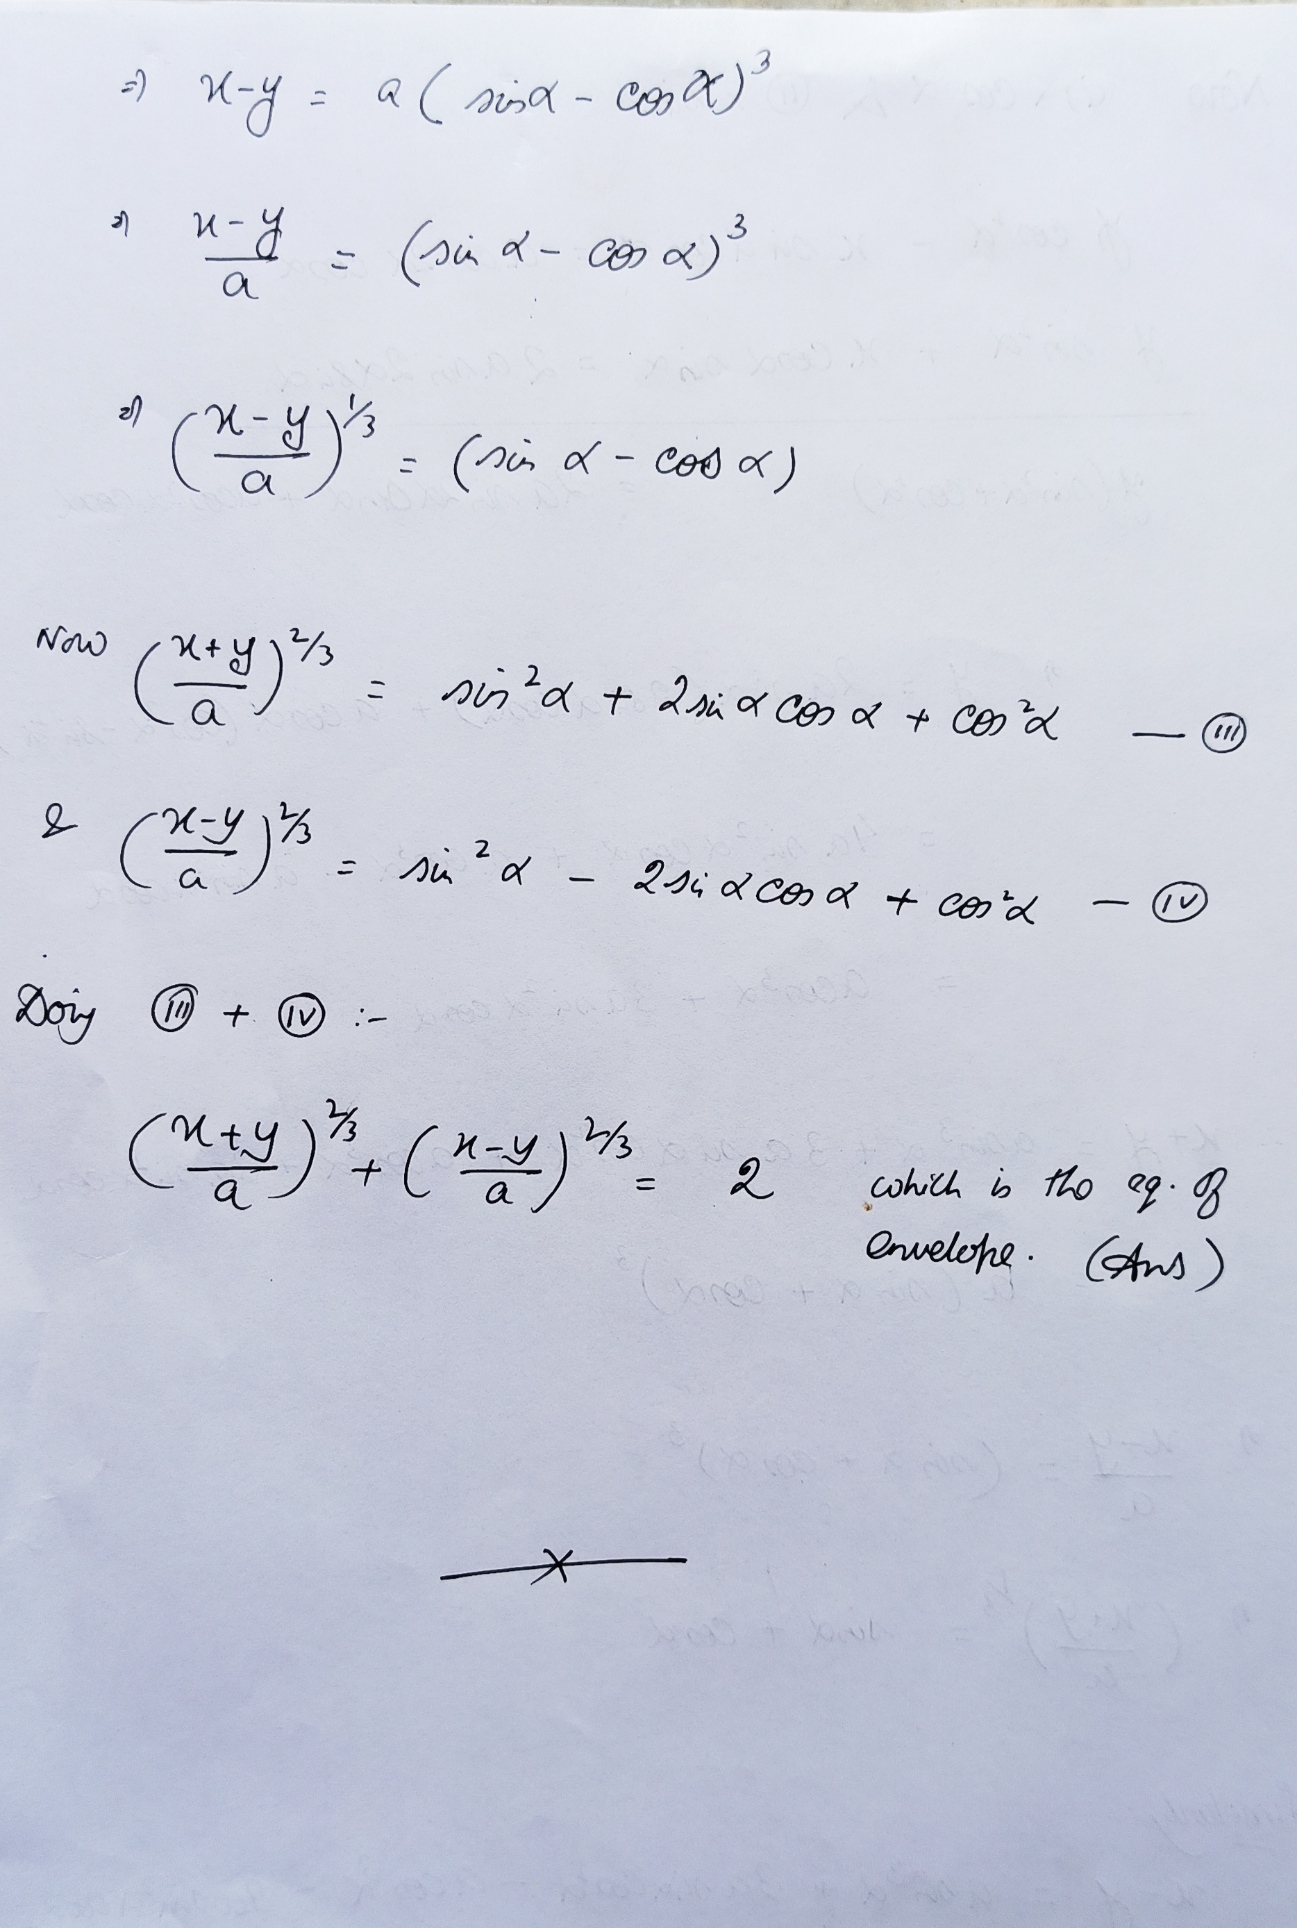 ⇒ x-y = a ( sinα - cosα)³
⇒ x-y/a = (sin α - cos α)³
⇒ (x-y/a)^1/3 = (sin α - cos α)
Now (x+y/a)^2/3 = sin²α + 2sin α cos α + cos²α — (III)
& (x-y/a)^2/3 = sin²α - 2sin α cos α + cos²α - (IV)
Doing (III) + (IV) :-
(x+y/a)^2/3 + (x-y/a)^2/3 = 2 which is the eq. of
envelope. (Ans)